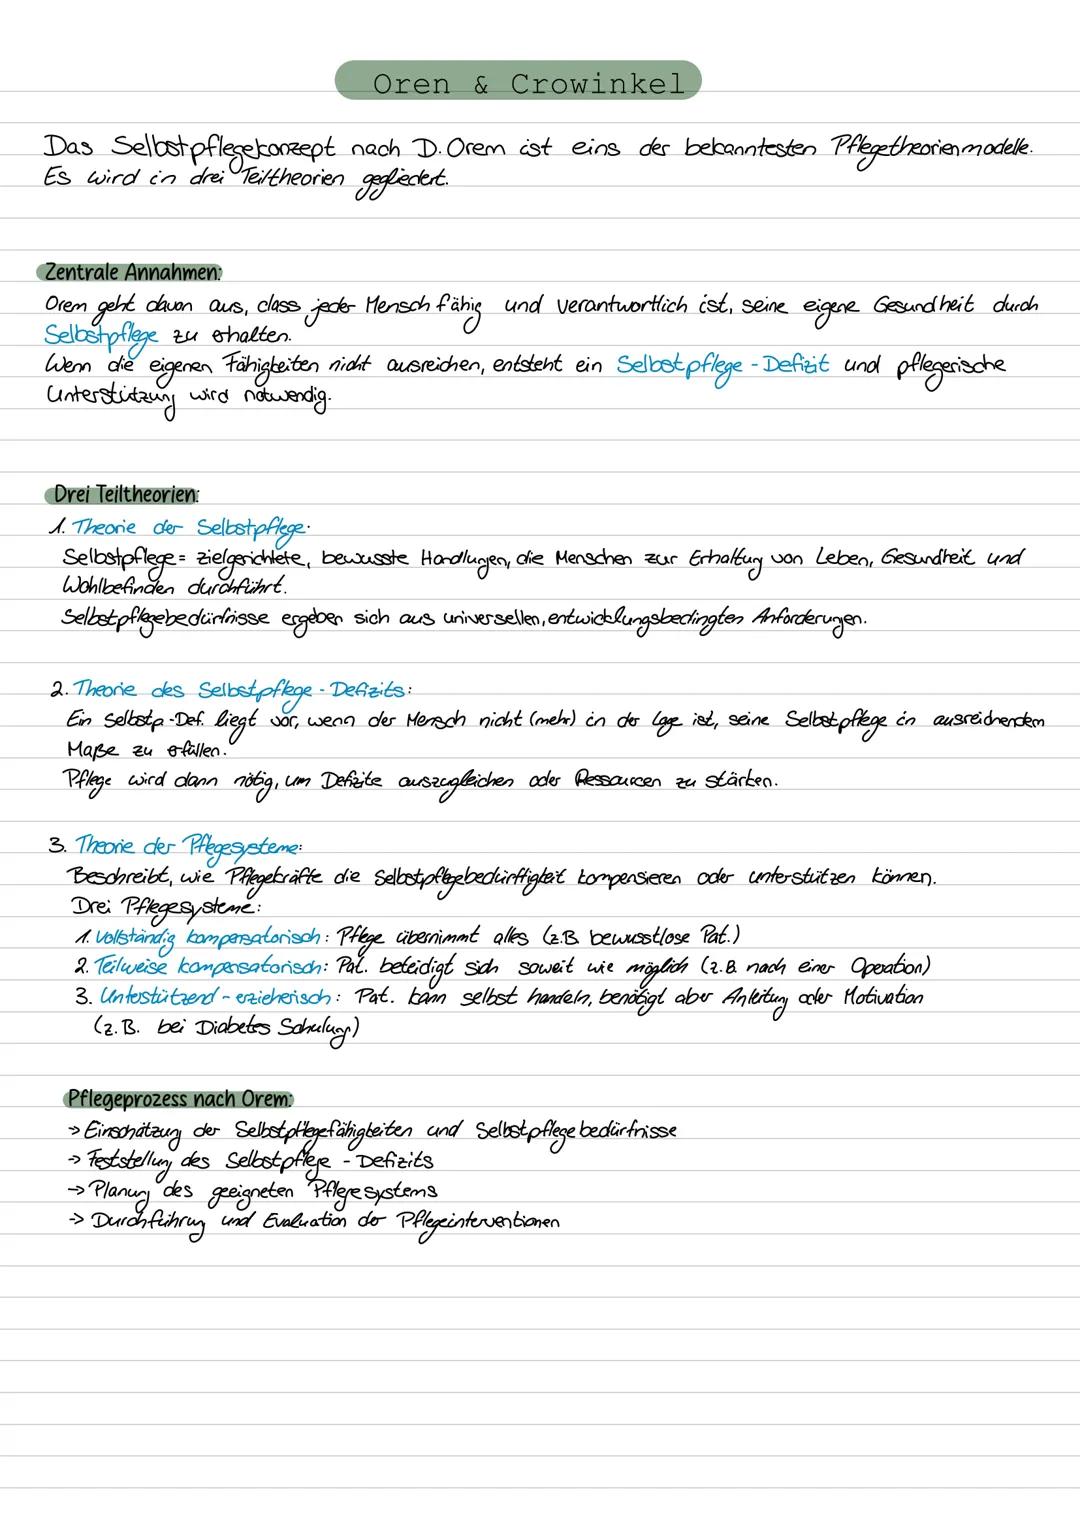 Oren & Crowinkel
Das Selbstpflegekonzept nach D. Orem ist eins der bekanntesten Pflegetheorienmodelle.
Es wird in drei Teiltheorien gegliedert.
Zentrale Annahmen:
Orem geht davon aus, dass jeder Mensch fähig und verantwortlich ist, seine eigene Gesundheit durch
Selbstpflege zu erhalten.
Wenn die eigenen Fähigkeiten nicht ausreichen, entsteht ein Selbstpflege - Defizit und pflegerische
Unterstützung wird notwendig.
Drei Teiltheorien:
1. Theorie der Selbstpflege:
Selbstpflege = zielgerichtete, bewusste Handlungen, die Menschen zur Erhaltung von Leben, Gesundheit und
Wohlbefinden durchführt.
Selbstpflegebedürfnisse ergeben sich aus universellen, entwicklungsbedingten Anforderungen.
2. Theorie des Selbstpflege - Defizits:
Ein Selbstp.-Def. liegt vor, wenn der Mensch nicht (mehr) in der Lage ist, seine Selbstpflege in ausreichendem
Maße zu erfüllen.
Pflege wird dann nötig, um Defizite auszugleichen oder Ressourcen zu stärken.
3. Theorie der Pflegesysteme:
Beschreibt, wie Pflegekräfte die Selbstpflegebedürftigkeit kompensieren oder unterstützen können.
Drei Pflegesysteme:
1. Vollständig kompensatorisch: Pflege übernimmt alles (z.B. bewusstlose Pat.)
2. Teilweise kompensatorisch: Pat. beteidigt sich soweit wie möglich (z.B. nach einer Operation)
3. Unterstützend - erzieherisch: Pat. kann selbst handeln, benötigt aber Anleitung oder Motivation
(z.B. bei Diabetes Schulung)
Pflegeprozess nach Orem:
-> Einschätzung der Selbstpflegefähigkeiten und Selbstpflegebedürfnisse
-> Feststellung des Selbstpflege - Defizits
-> Planung des geeigneten Pflegesystems
-> Durchführung und Evaluation der Pflegeinterventionen